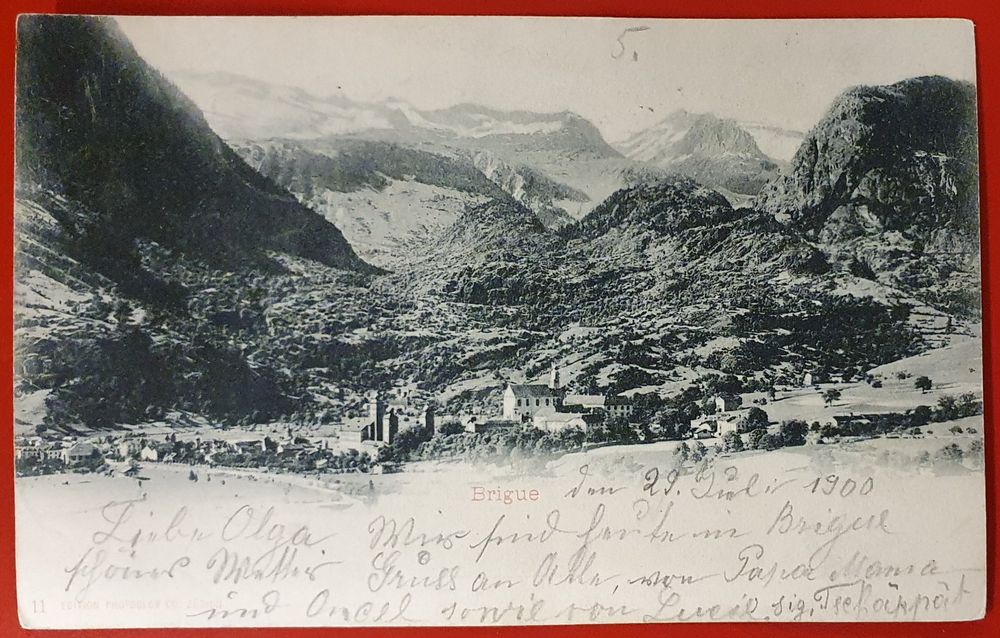 5.
Brigue den 29. Juli 1900
Liebe Olga Wir sind heute in Brigue
schönes Wetter Gruss an Alle, von Papa Mama
und Oncel sowie von Lucie sig. Tschäppät
11 EDITION PHOTOGLOB CO. ZÜRICH